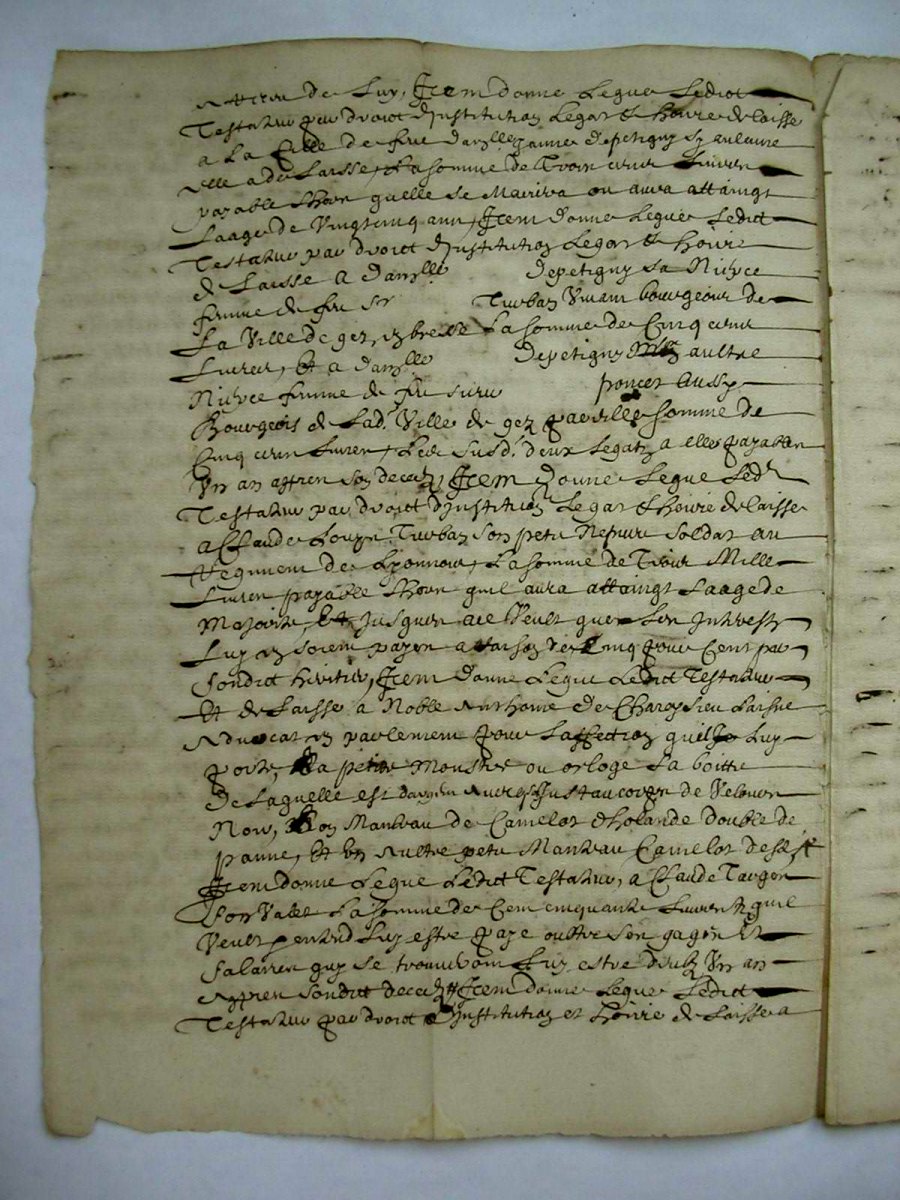 de Luy, Item donne Legue Ledict
Testateur par droict d'institution Legat & hoirie delaisse
a La fille de feu dam.lle Jeanne depetigny sy aulcune
elle a de Laisse, La somme de Trois cens Livres
payable Lhors quelle se Mariera ou aura attaingt
Laage de Vingtcinq ans, Item donne Legue Ledict
Testateur par droict d'institution Legat & hoirie
de Laisse a dam.lle depetigny sa Niepce
femme de feu Sr Turban Vivant bourgeois de
La Ville de gex, en bresse La somme de Cinq cens
Livres, Et a dam.lle depetigny aultre
Niepce femme de feu sieur poncet Aussy
Bourgeois de Lad.t Ville de gex pareille somme de
Cinq cens Livres, Les susd.ts deux Legatz a elle payables
Un an appres son deces, Item donne Legue Led.t
Testateur par droict d'institution Legat & hoirie delaisse
a Claude Louys Turban son petit Nepveu soldat au
Regiment de Lyonnois, La somme de Trois Mille
Livres payable Lhors quil aura attaingt Laage de
Majorite, Et Jusques a ce Veult que Les Interestz
Luy en soient payes a raison de Cinq pour Cent par
sondict heritier, Item donne Legue Ledict Testateur
Et de Laisse a Noble Anthoine de Chaponsieu Laisne
Advocat en parlement pour Laffection quil Luy
porte, La petite Monstre ou orloge La boitte
De Laquelle est dargent Avec Justaucorps de Velours
Noir, Son Manteau de Camelot d'holande double de
panne, Et Un Aultre petit Manteau Camelot
Item donne Legue Ledict Testateur, a Claude
son Valet La somme de Cent cinquante Livres quil
Veult pretend Luy estre paye oultre son gages Et
salaires quy se trouveront Luy estre deubz Un an
appres sondict deces Item donne Legue Ledict
Testateur par droict d'Institution et hoirie de Laisse a